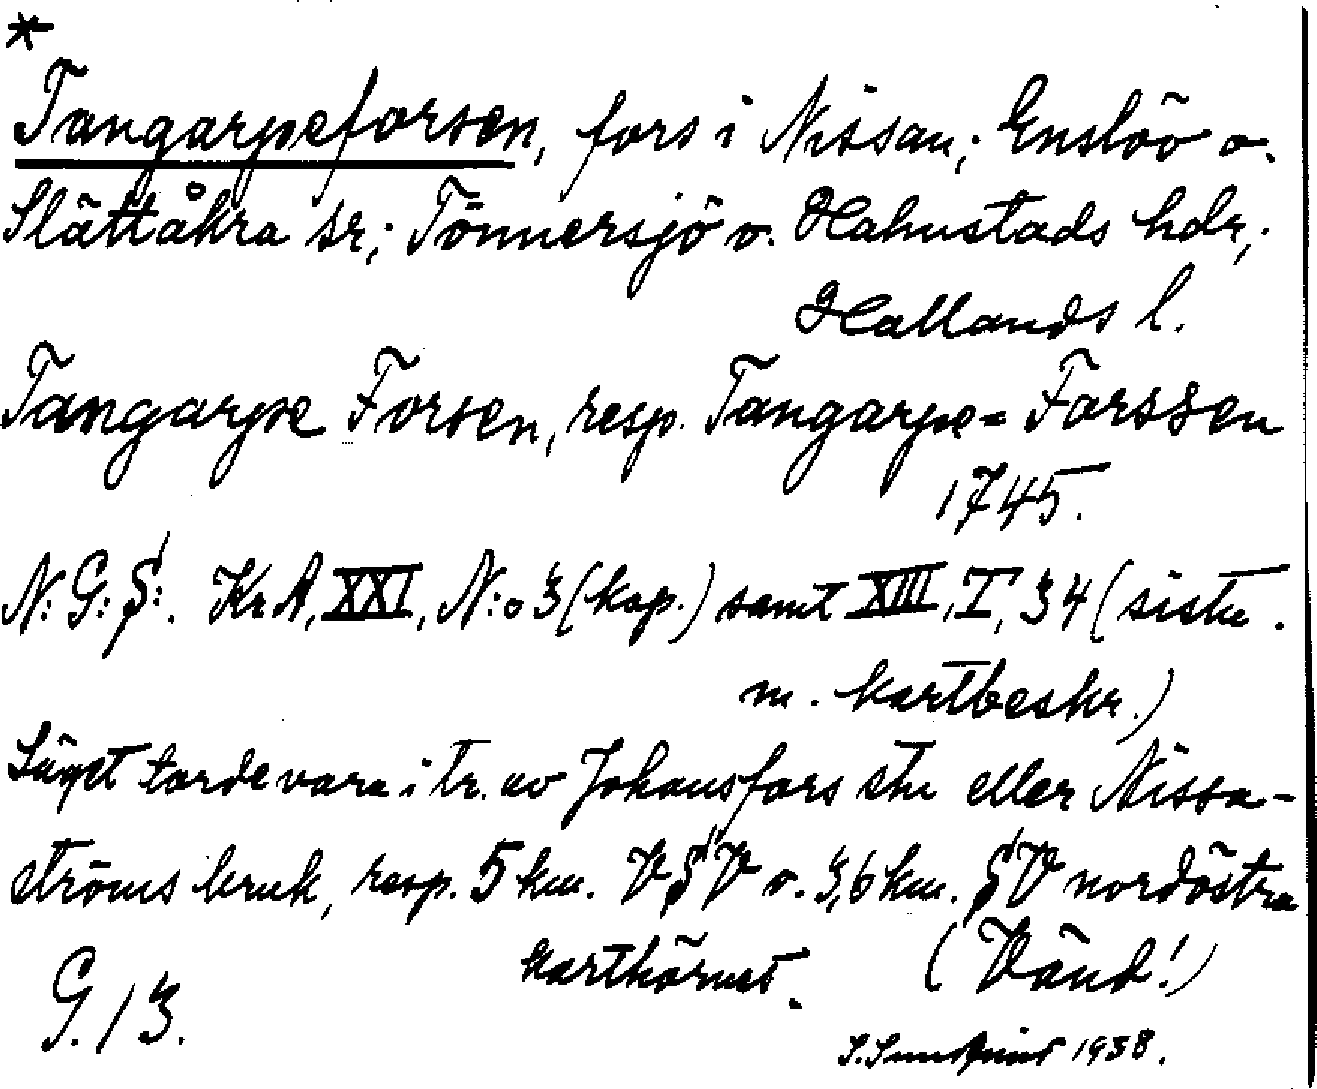 *
Tangarpeforsen, fors i Nissan; Enslöv o.
Slättåkra sr; Tönnersjö o. Halmstads hdr;
Hallands l.
Tangarpe Forsen, resp. Tangarpe= Forssen
1745.
N: G: S:. Kr A, XXI, N:o 3 (kop.) samt XIII, I, 34 (siste.
m. kartbeskr.)
Läget torde vara i tr. av Johansfors stn eller Nissa-
ströms bruk, resp. 5 km. VSV o. 3,6 km. SV nordöstra
karthörnet. (Vänd!)
G. 13.
S. Sundqvist 1938.